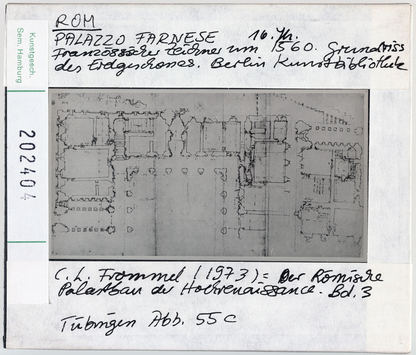 ROM
PALAZZO FARNESE 16. Jh.
Französischer Zeichner um 1560. Grundriss
des Erdgeschosses. Berlin Kunstbibliothek
Kunstgesch.
Sem. Hamburg
202404
C. L. Frommel (1973) = Der Römische
Palastbau der Hochrenaissance. Bd. 3
Tübingen Abb. 55c